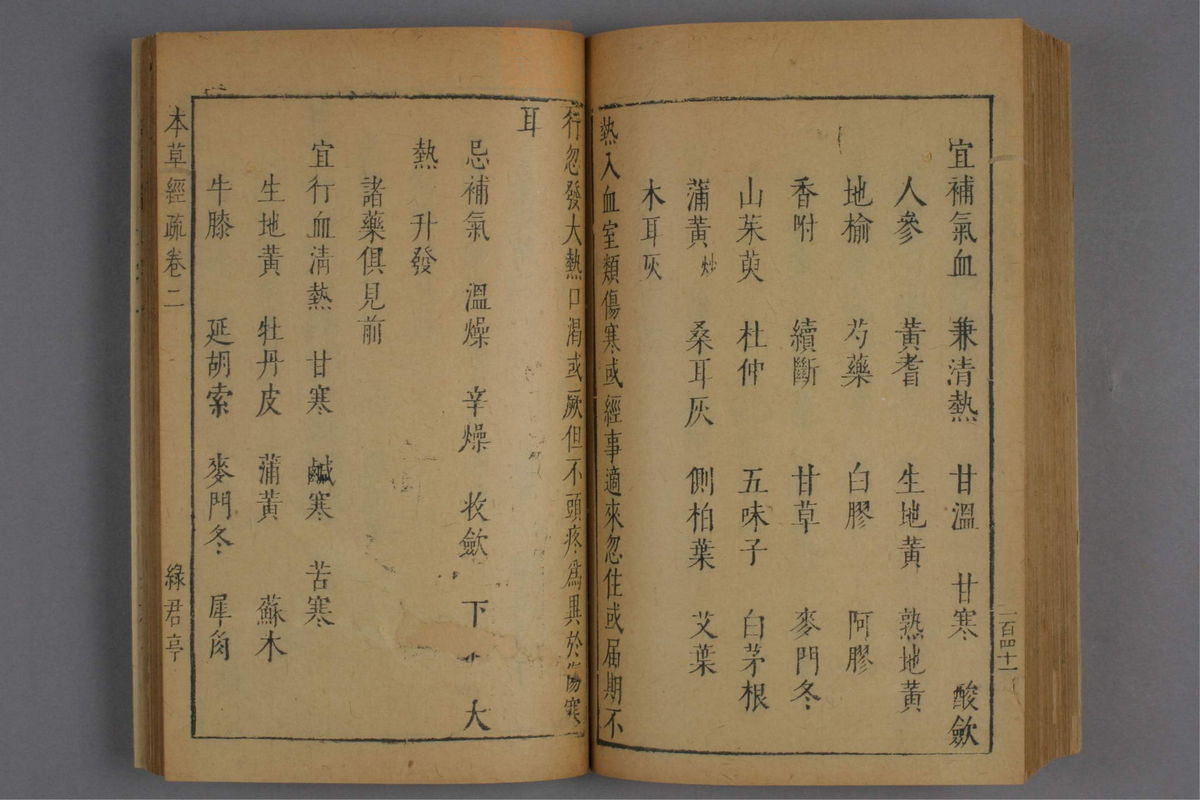 宜補氣血　兼清熱　甘溫　甘寒　酸歛
人參　黃耆　生地黃　熟地黃
地榆　芍藥　白膠　阿膠
香附　續斷　甘草　麥門冬
山茱萸　杜仲　五味子　白茅根
蒲黃炒　桑耳灰　側柏葉　艾葉
木耳灰
熱入血室類傷寒或經事適來忽住或届期不
一百四十一
行忽發大熱口渴或厥但不頭疼爲異於傷寒
耳
忌補氣　溫燥　辛燥　收歛　下　大
熱　升發
諸藥俱見前
宜行血清熱　甘寒　鹹寒　苦寒
生地黃　牡丹皮　蒲黃　蘇木
牛膝　延胡索　麥門冬　犀角
本草經疏卷二　綠君亭